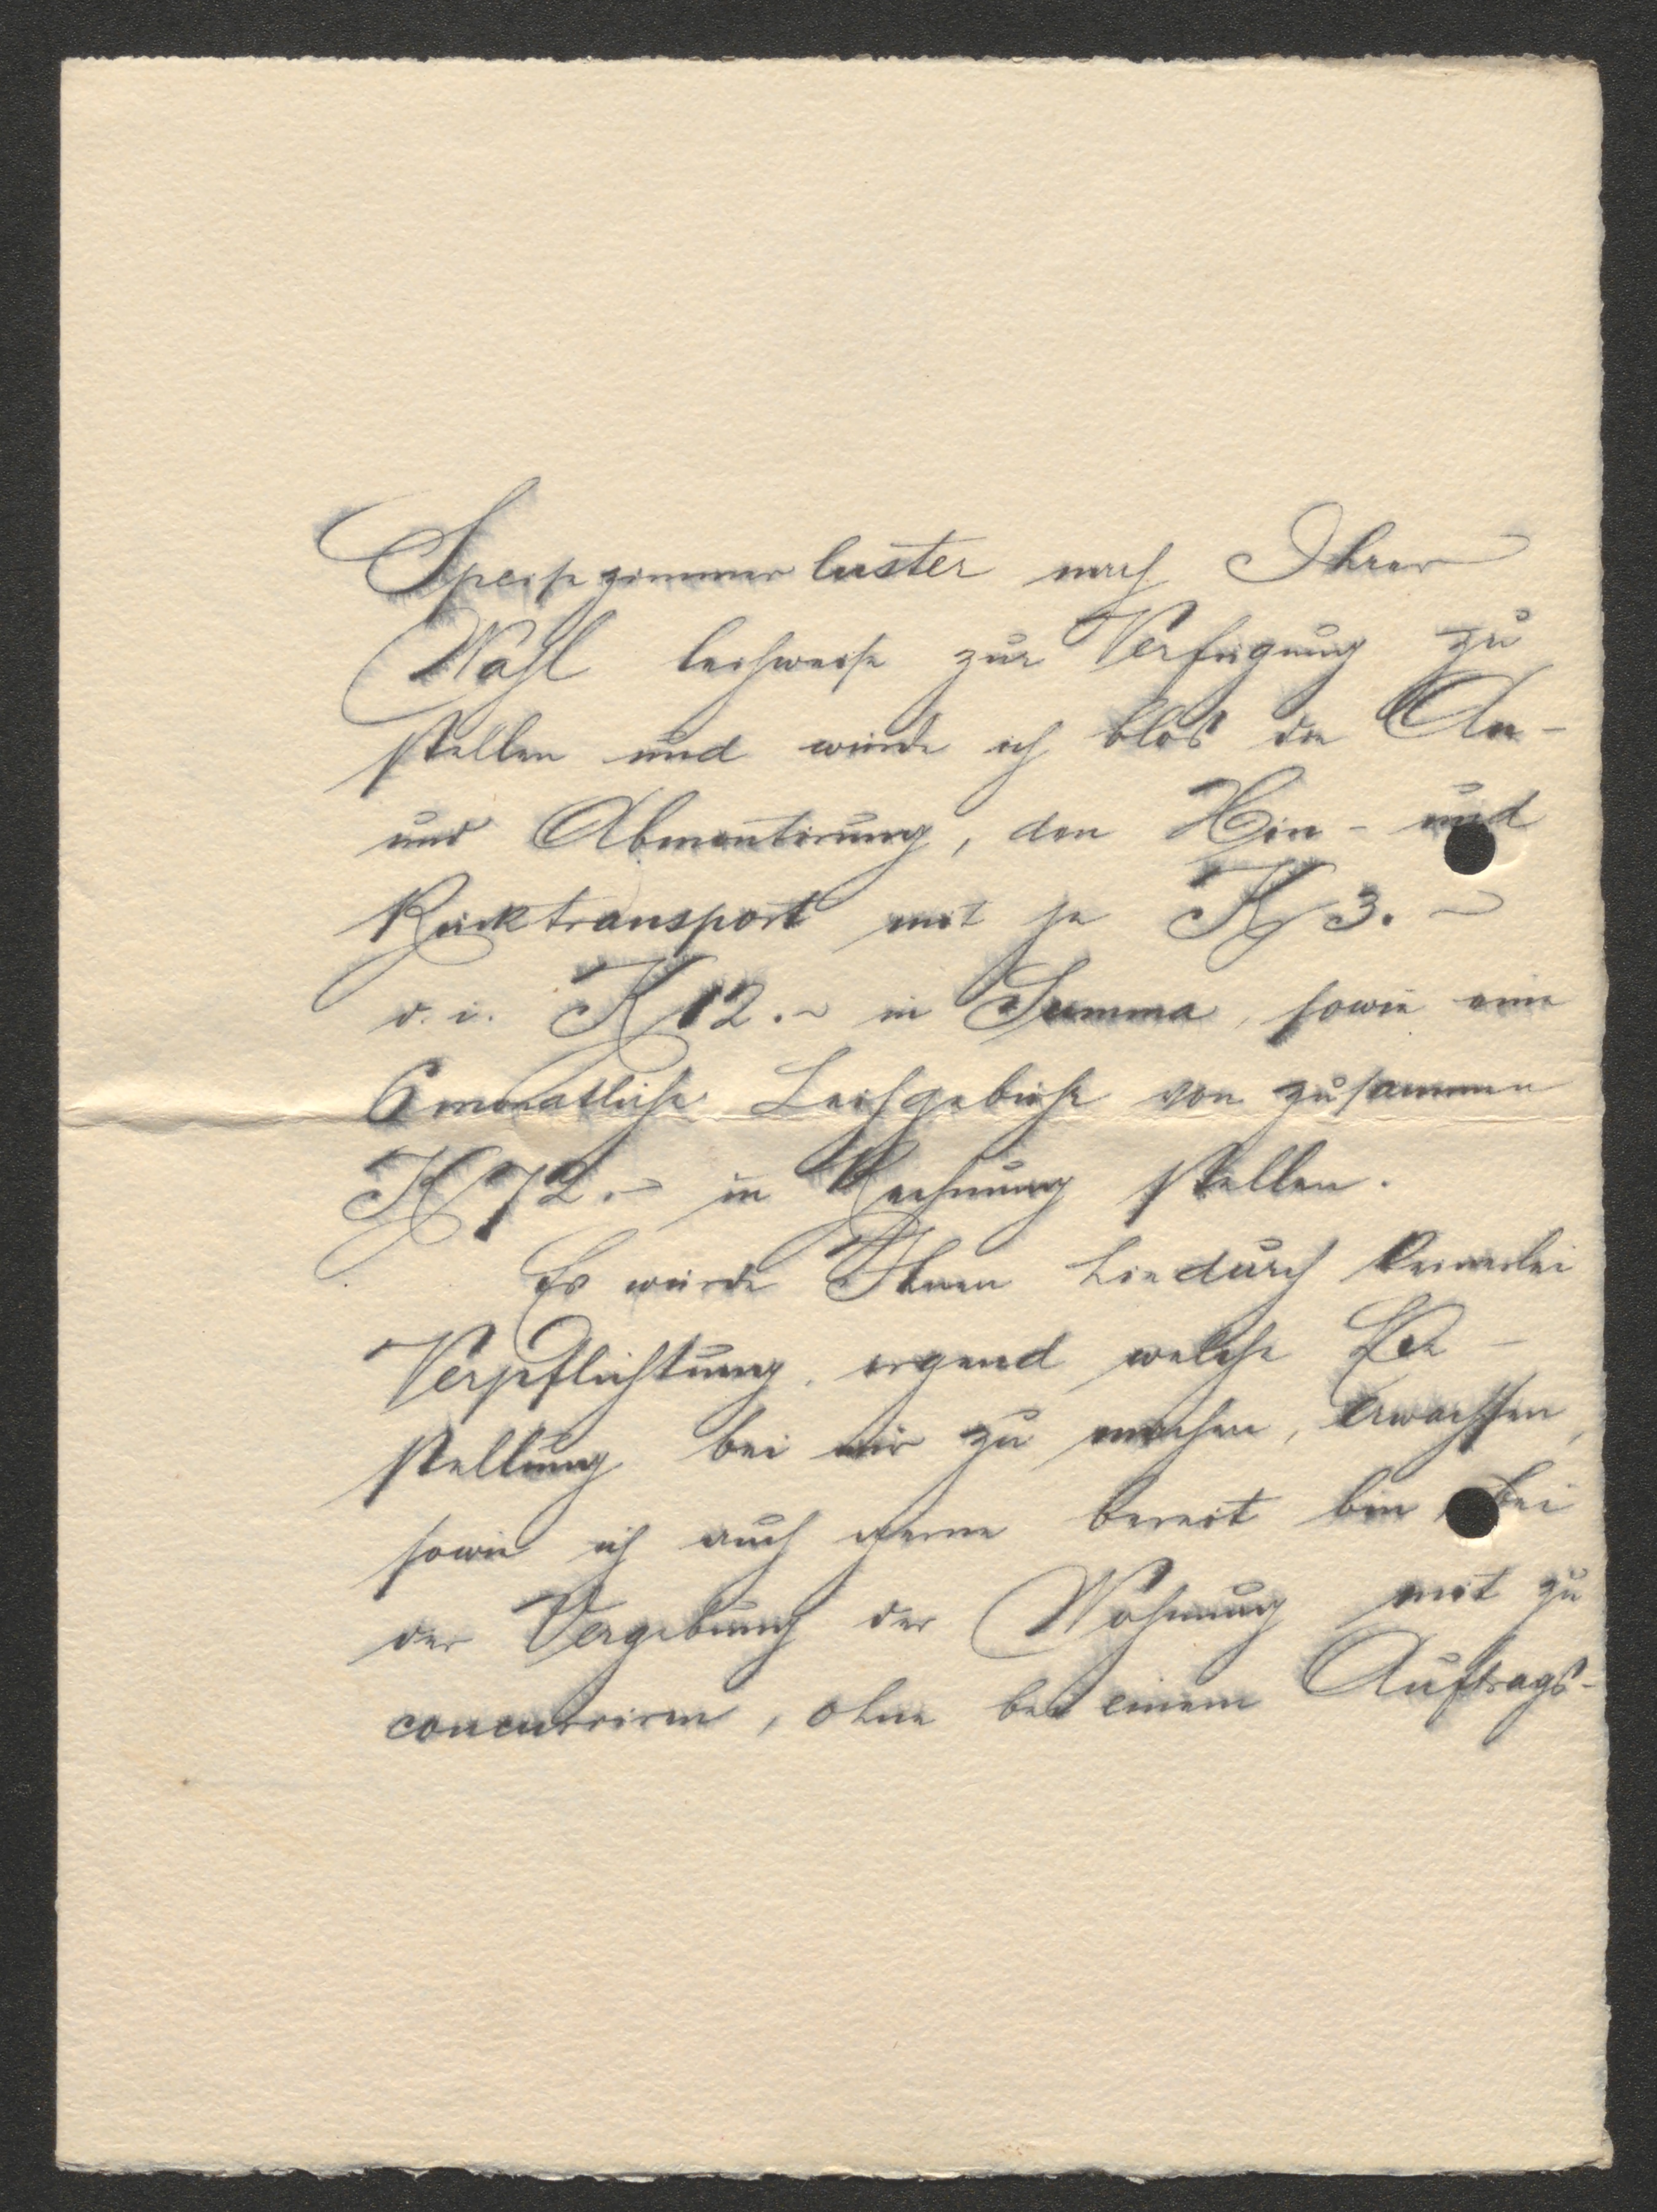 Speisezimmerluster nach Ihrer
Wahl leihweise zur Verfügung zu
stellen und würde ich blos die An-
und Abmontirung, den Hin- und
Rücktransport mit je K 3.-
d. i. K 12.- in Summa, sowie eine
6 monatliche Leihgebühr von zusammen
K 72.- in Rechnung stellen.
Es würde Ihnen hiedurch keinerlei
Verpflichtung, irgend welche Be-
stellung bei mir zu machen, erwachsen,
sowie ich auch gerne bereit bin bei
der Vergebung der Wohnung mit zu
concurriren, ohne bei einem Auftrags-